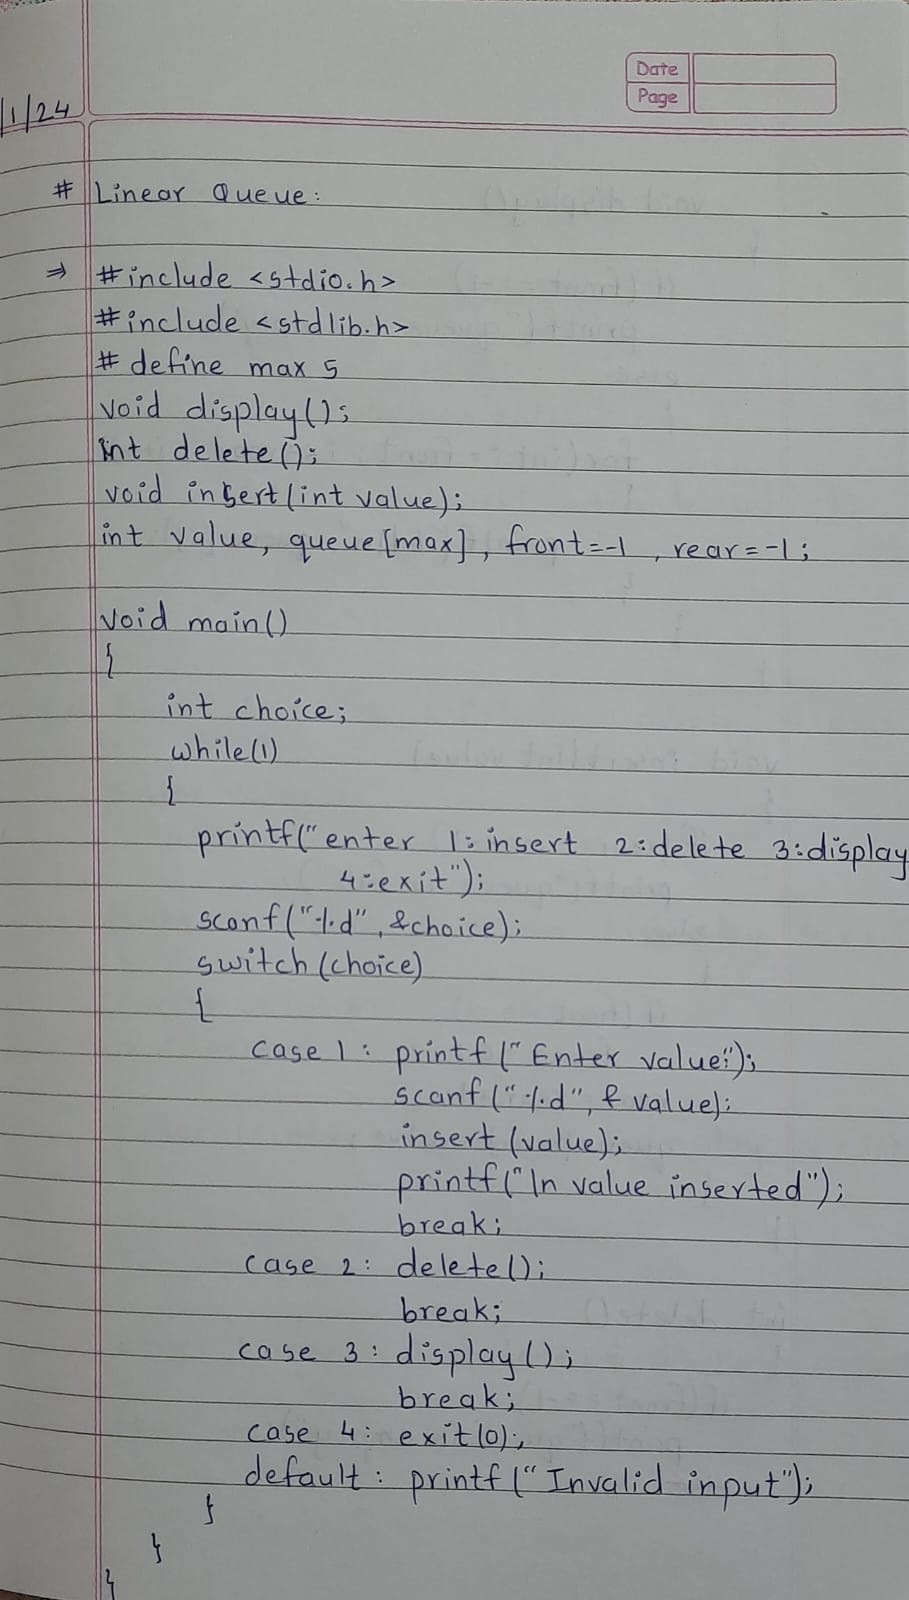 Date
Page
/1/24
# Linear Queue:
⇒ #include <stdio.h>
#include <stdlib.h>
# define max 5
void display();
int delete();
void insert(int value);
int value, queue[max], front=-1, rear=-1;
void main()
{
int choice;
while(1)
{
printf("enter 1:insert 2:delete 3:display
4:exit");
scanf("%d", &choice);
switch(choice)
{
case 1: printf("Enter value:");
scanf("%d", &value);
insert(value);
printf("\n value inserted");
break;
case 2: delete();
break;
case 3: display();
break;
case 4: exit(0);
default: printf("Invalid input");
}
}
}